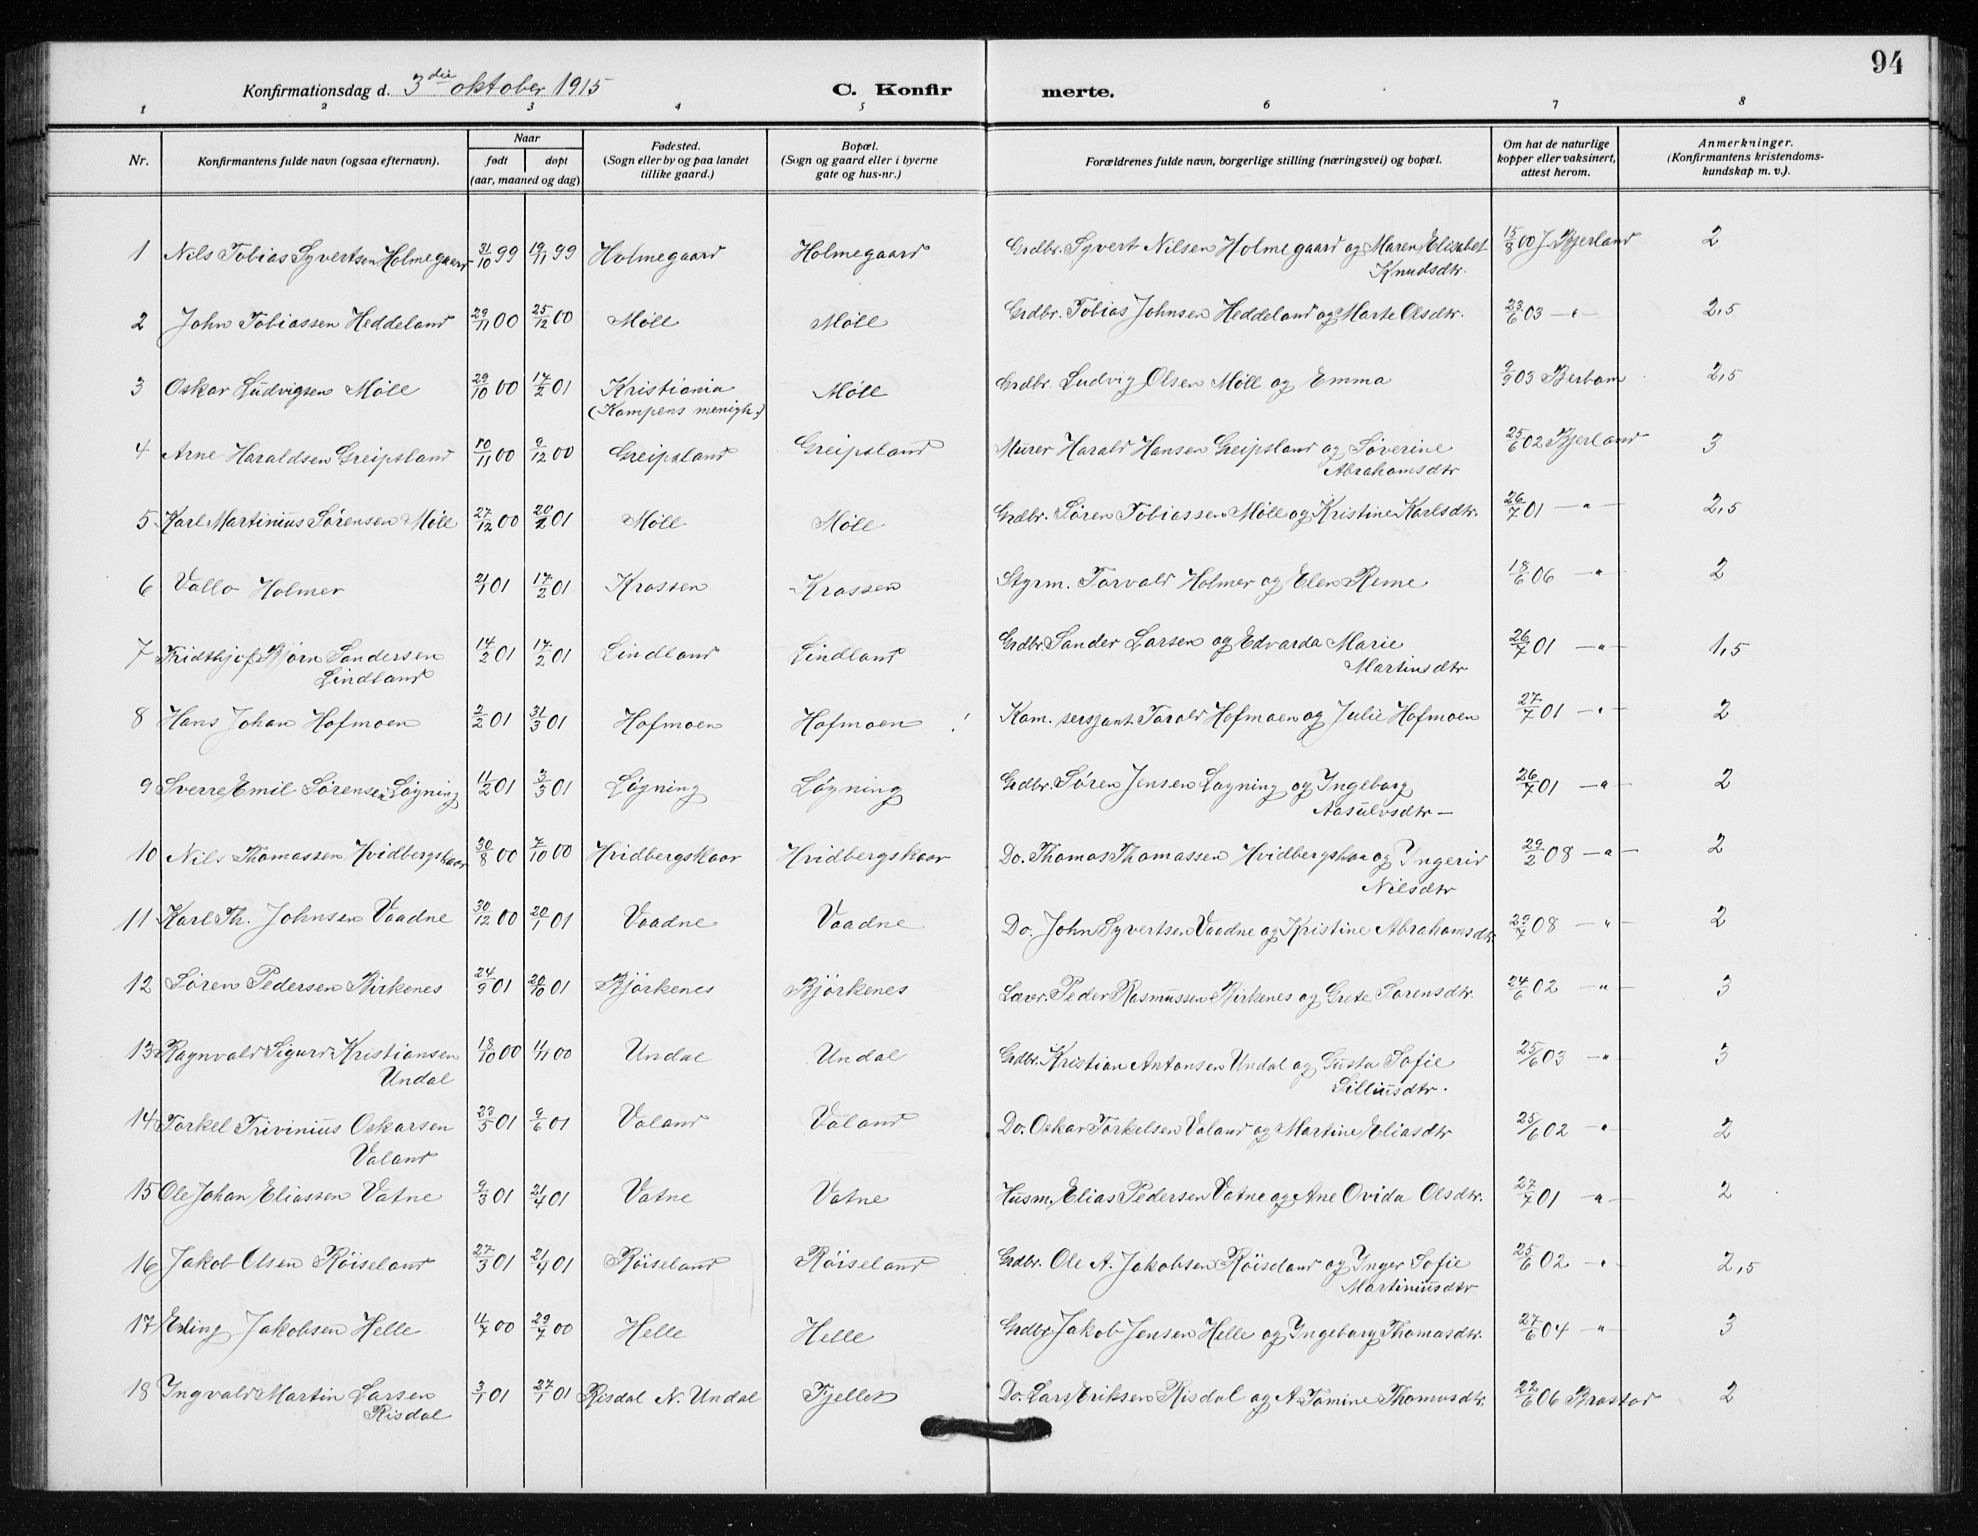 94
Konfirmationsdag d. 3die oktober 1915 C. Konfir merte.
1 2 3 4 5 6 7 8
Nr. Konfirmantens fulde navn (ogsaa efternavn). Naar født døpt (aar, maaned og dag) Fødested. (Sogn eller by og paa landet tillike gaard.) Bopæl. (Sogn og gaard eller i byerne gate og hus-nr.) Forældrenes fulde navn, borgerlige stilling (næringsvei) og bopæl. Om hat de naturlige kopper eller vaksinert, attest herom. Anmerkninger. (Konfirmantens kristendoms- kundskap m. v.).
1 Nils Tobias Syvertsen Holmegaard 31/10 99 19/11 99 Holmegaard Holmegaard Grdbr. Syvert Nilsen Holmegaard og Maren Elisabet 15/8 00 J. Bjerland 2
Knudsdtr.
2 John Tobiassen Heddeland 29/11 00 25/12 00 Møll Møll Grdbr. Tobias Johnsen Heddeland og Marte Olsdtr. 23/6 03 — " — 2,5
3 Oskar Ludvigsen Møll 29/10 00 17/2 01 Kristiania Møll Grdbr. Ludvig Olsen Møll og Emma 9/9 03 Berbom 2,5
(Kampens menigh.)
4 Arne Haraldsen Greipsland 10/11 00 9/12 00 Greipsland Greipsland Murer Harald Hansen Greipsland og Søverine 25/6 02 Bjerland 3
Abrahamsdtr
5 Karl Martinius Sørensen Møll 27/12 00 20/2 01 Møll Møll Grdbr. Søren Tobiassen Møll og Kristine Karlsdtr. 26/7 01 — " — 2,5
6 Vallo Holmer 21/1 01 17/2 01 Krossen Krossen Styrm. Torvald Holmer og Elen Reme 18/6 06 — " — 2
7 Fridthjof Bjørn Sandersen 14/2 01 17/2 01 Lindland Lindland Grdbr Sander Larsen og Edvarda Marie 26/7 01 — " — 1,5
Lindland Martinsdtr
8 Hans Johan Hofmoen 2/2 01 31/3 01 Hofmoen Hofmoen Kom. sersjant Tarald Hofmoen og Julie Hofmoen 27/7 01 — " — 2
9 Sverre Emil Sørensen Løgning 11/2 01 3/3 01 Løgning Løgning Grdbr. Søren Jensen Løgning og Ingeborg 26/7 01 — " — 2
Aasulvsdtr —
10 Nils Thomassen Hvidbergskaar 30/8 00 7/10 00 Hvidbergskaar Hvidbergskaar Do. Thomas Thomassen Hvidbergskaa og Ingerid 29/2 08 — " — 2
Nilsdtr
11 Karl Th. Johnsen Vaadne 30/12 00 20/1 01 Vaadne Vaadne Do. John Syvertsen Vaadne og Kristine Abrahamsdtr. 29/7 08 — " — 2
12 Søren Pedersen Birkenes 24/9 01 20/10 01 Bjørkenes Bjørkenes Lærer. Peder Rasmussen Birkenes og Grete Sørensdtr. 24/6 02 — " — 3
13 Ragnvald Sigurd Kristiansen 18/10 00 11/11 00 Undal Undal Grdbr. Kristian Antonsen Undal og Gusta Sofie 25/6 03 — " — 3
Undal Silliusdtr.
14 Torkel Trivinius Oskarsen 23/5 01 9/6 01 Valand Valand Do. Oskar Torkelsen Valand og Martine Eliasdtr 25/6 02 — " — 2
Valand
15 Ole Johan Eliassen Vatne 9/3 01 21/4 01 Vatne Vatne Husm. Elias Pedersen Vatne og Ane Ovida Olsdtr. 27/7 01 — " — 2
16 Jakob Olsen Røiseland 27/3 01 21/4 01 Røiseland Røiseland Grdbr. Ole A. Jakobsen Røiseland og Inger Sofie 25/6 02 — " — 2,5
Martiniusdtr
17 Erling Jakobsen Helle 11/7 00 29/7 00 Helle Helle Grdbr Jakob Jensen Helle og Ingeborg Thomasdtr. 27/6 04 — " — 3
18 Ingvald Martin Larsen 3/1 01 27/1 01 Risdal N. Undal Fjellet Do. Lars Eriksen Risdal og A. Tomine Thomasdtr. 22/6 06 Brastad 2
Risdal